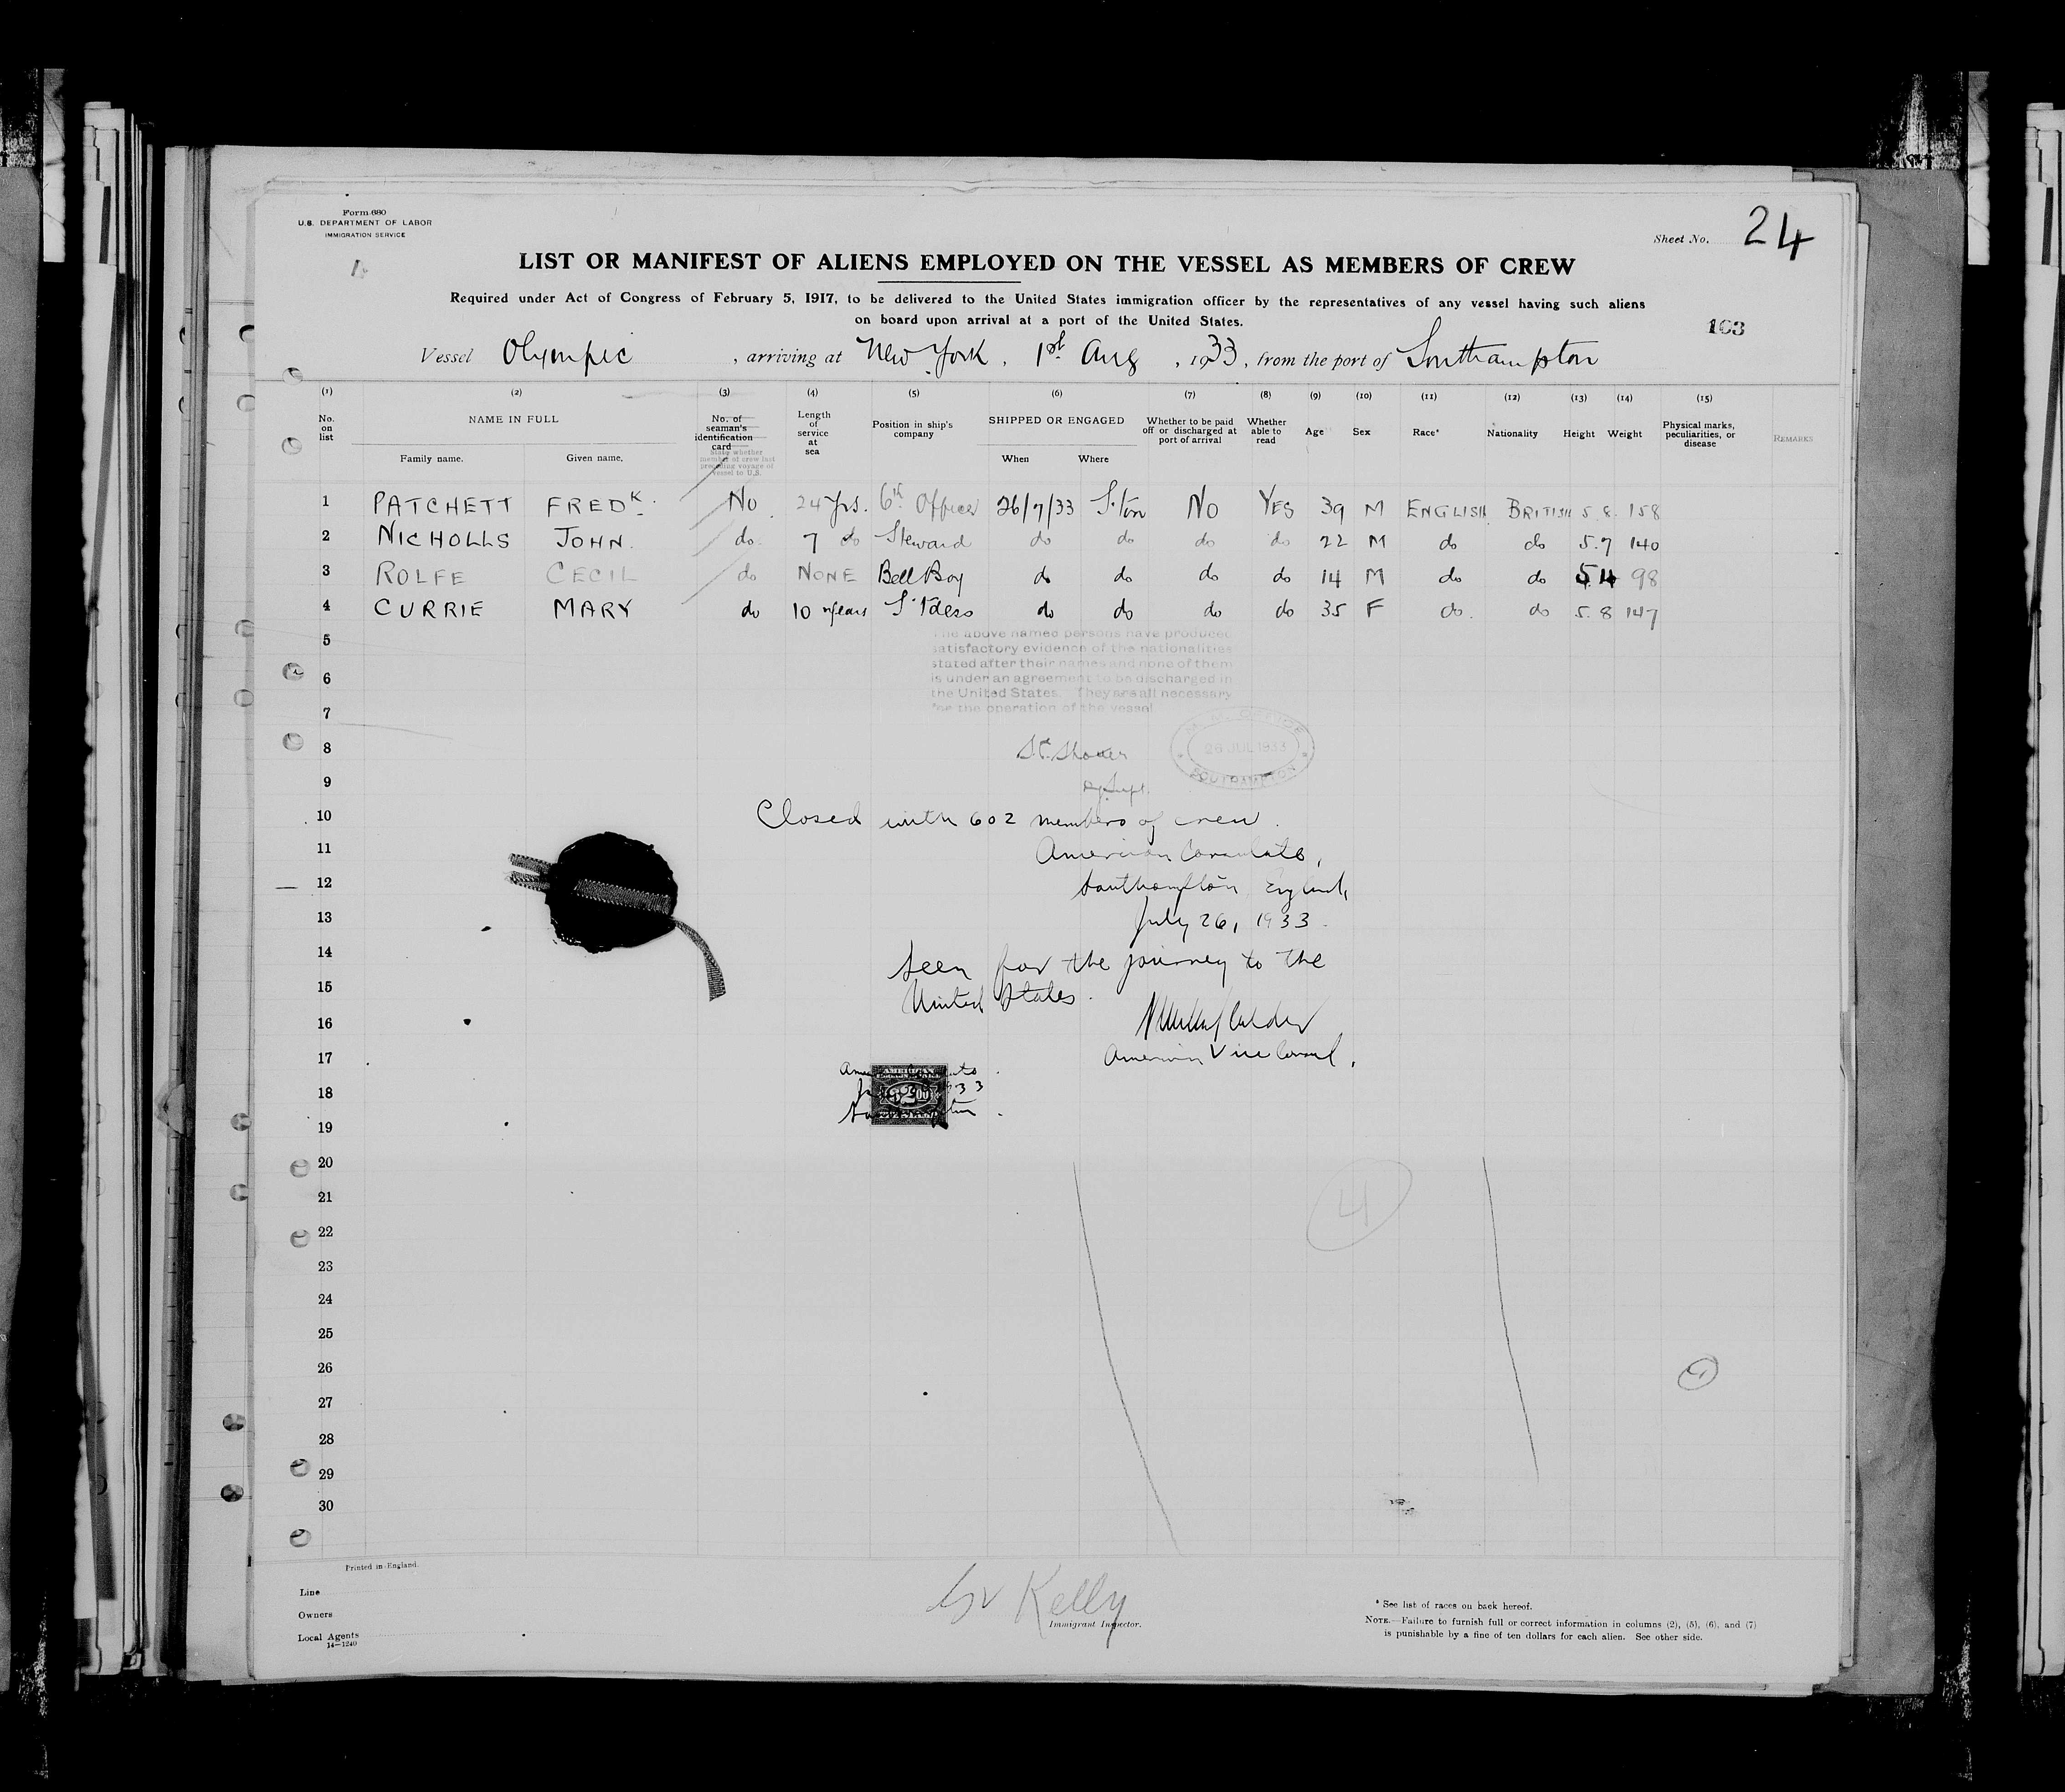 Form 680
U.S. DEPARTMENT OF LABOR
IMMIGRATION SERVICE
Sheet No. 24
LIST OR MANIFEST OF ALIENS EMPLOYED ON THE VESSEL AS MEMBERS OF CREW
Required under Act of Congress of February 5, 1917, to be delivered to the United States immigration officer by the representatives of any vessel having such aliens
on board upon arrival at a port of the United States.
163
Vessel Olympic, arriving at New York, 1st Aug, 1933, from the port of Southampton
(1) (2) (3) (4) (5) (6) (7) (8) (9) (10) (11) (12) (13) (14) (15)
No. on list NAME IN FULL Family name. Given name. No. of seaman's identification card State whether member of crew last preceding voyage of vessel to U.S. Length of service at sea Position in ship's company SHIPPED OR ENGAGED When Where Whether to be paid off or discharged at port of arrival Whether able to read Age Sex Race* Nationality Height Weight Physical marks, peculiarities, or disease REMARKS
1 PATCHETT FREDK. No 24 Yrs. 6th Officer 26/7/33 S'ton No YES 39 M ENGLISH BRITISH 5.8. 158
2 NICHOLLS JOHN. do. 7 do Steward do do do do 22 M do do 5.7 140
3 ROLFE CECIL do NONE Bell Boy do do do do 14 M do do 5 4 98
4 CURRIE MARY do 10 years S'tdess do do do do 35 F do. do 5.8 147
5
The above named persons have produced
satisfactory evidence of the nationalities
stated after their names and none of them
6
is under an agreement to be discharged in
the United States. They are all necessary
7
for the operation of the vessel
M. M. OFFICE
26 JUL 1933
SOUTHAMPTON
8
9
10 Closed with 602 members of crew.
11 American Consulate,
12 Southampton, England,
13 July 26, 1933.
14 Seen for the journey to the
15 United States.
16
17 American Vice Consul.
AMERICAN
18
19
20
21 4
22
23
24
25
26
27
28
29
30
Printed in England.
Line
Owners
Local Agents
14—1240
Kelly
Immigrant Inspector.
* See list of races on back hereof.
NOTE.—Failure to furnish full or correct information in columns (2), (5), (6), and (7)
is punishable by a fine of ten dollars for each alien. See other side.